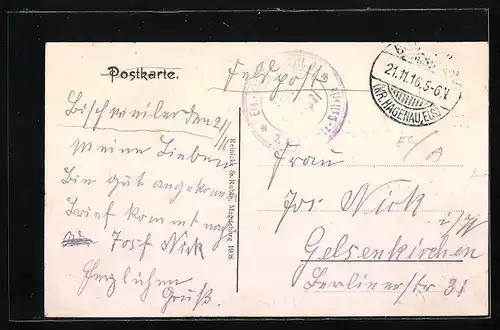 Postkarte.
Feldpost
21.11.16.5-6N
(KR.HAGENAU,ELS.)
Bischweiler den 21/11
Meine Lieben
Bin gut angekom
Brief kommt nach
Josf Nick
Herzlichen
Gruß.
Reinicke & Rubin, Magdeburg 1908
Frau
Jos Nick
Gelsenkirchen
i/W
Berlinerstr 31